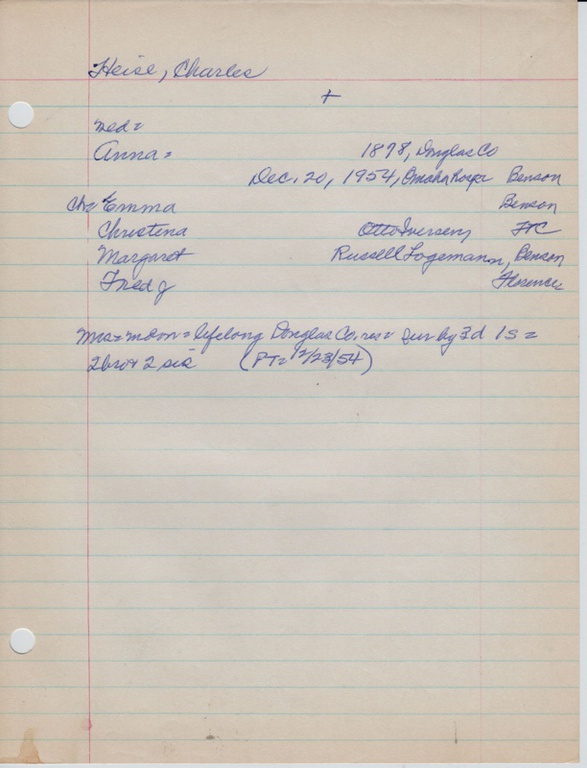 Heise, Charles
+
Med=
Anna= 1878, Douglas Co
Dec. 20, 1954, Omaha Hosp Benson
Ch= Emma Benson
Christena Otto Iversen, FC
Margaret Russell Logemann, Benson
Fred J Florence
Mra= = lifelong Douglas Co. res= Sur by 3d 1s=
2 bro+ 2 sis (PT= 12/23/54)